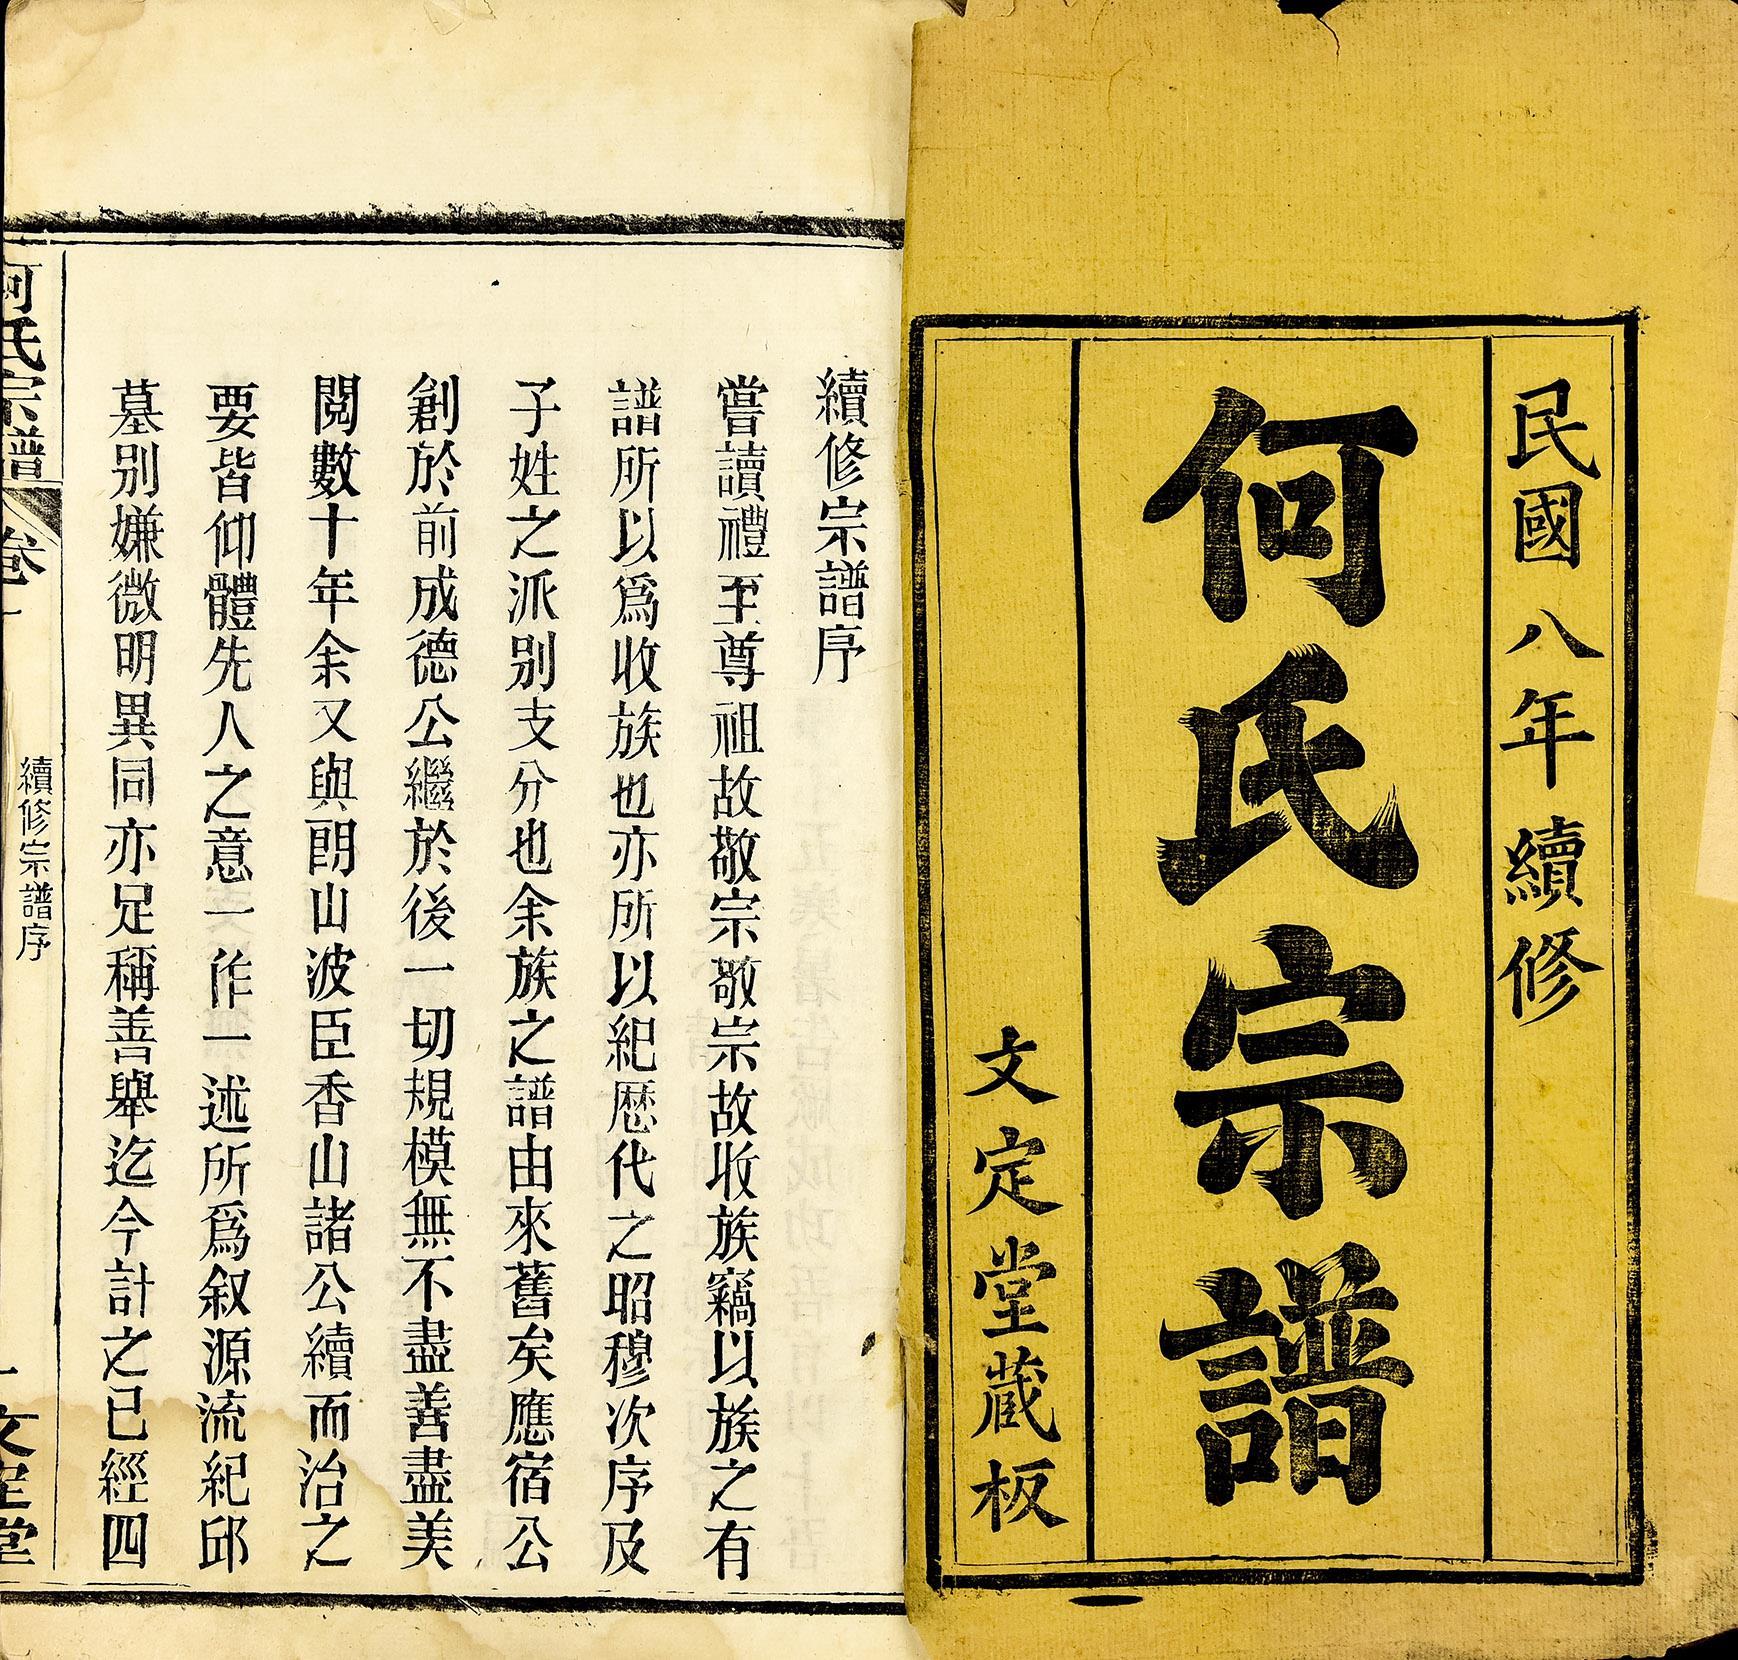 民國八年續修
何氏宗譜
文定堂蔵板
續修宗譜序
嘗讀禮至尊祖故敬宗敬宗故收族竊以族之有
譜所以爲收族也亦所以紀歴代之昭穆次序及
子姓之派別支分也余族之譜由來舊矣應宿公
創於前成德公繼於後一切規模無不盡善盡美
閱數十年余又與朗山波臣香山諸公續而治之
要皆仰體先人之意一作一述所爲叙源流紀邱
墓別嫌微明異同亦足稱善舉迄今計之已經四
何氏宗譜
卷一
續修宗譜序
一
文定堂